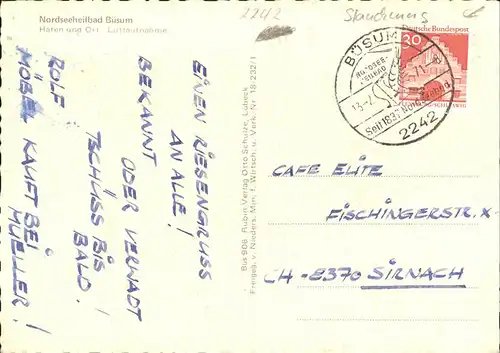 Nordseeheilbad Büsum
Hafen und Ort - Luftaufnahme
2242
Standierung
EINEN RIESENGRUSS
AN ALLE!
BEKANNT
ODER VERWADT
TSCHÜSS BIS
BALD!
ROLF!
MÖBEL KAUFT BEI
MUELLER!
Büs 906 Rubin Verlag Otto Schulze, Lübeck
Freigeg. v. Nieders. Min. f. Wirtsch. u. Verk. Nr 18-232/1
Deutsche Bundespost
30
BÜSUM
NORDSEE-
HEILBAD
Seit 1837 Nordseebad
2242
CAFE ELITE
FISCHINGERSTR.X.
CH-8370 SIRNACH